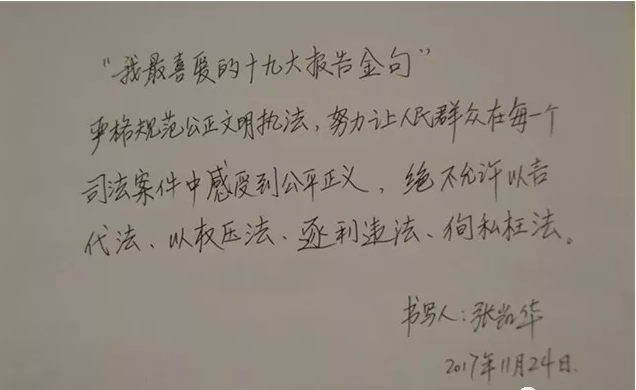 “我最喜爱的十九大报告金句”
严格规范公正文明执法，努力让人民群众在每一个
司法案件中感受到公平正义，绝不允许以言
代法、以权压法、逐利违法、徇私枉法。
书写人：张凯华
2017年11月24日.